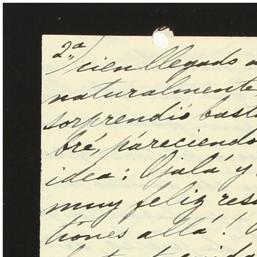 2ª
cien llegado a
naturalmente
sorprendió bast
bré, pareciendo
idea: Ojalá y
muy feliz res
tiones allá!